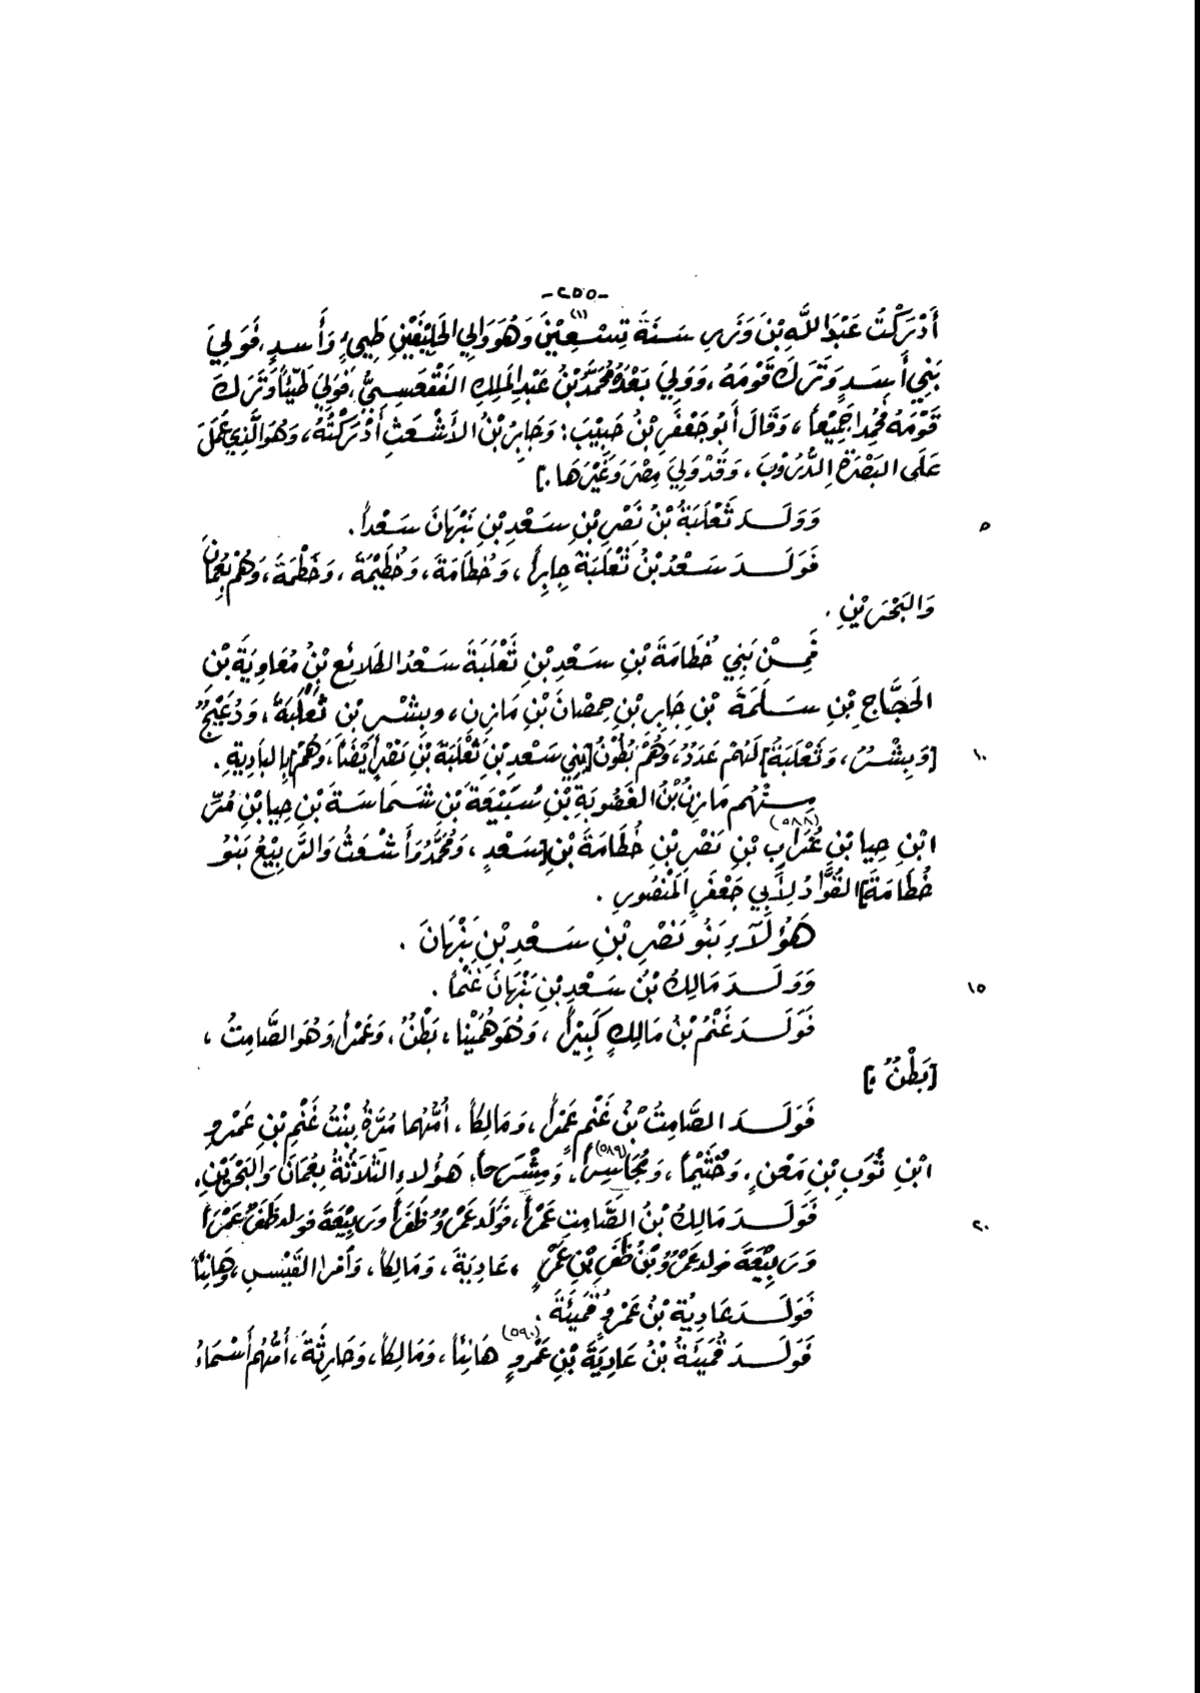 -٢٥٥-
أَدْرَكْتُ عَبْدَ اللَّهِ بْنَ وَزَرٍ سَنَةَ تِسْعِيْنَ (١) وَهُوَ وَالِي الحَلِيْفَيْنِ طَيِّيءٍ وَأَسدٍ، فَوَلِيَ
بَنِي أَسَدٍ وَتَرَكَ قَوْمَهُ، وَوَلِيَ بَعْدَهُ مُحَمَّدُ بْنُ عَبْدِ المَلِكِ الفَقْعَسِيُّ، فَوَلِيَ طَيِّئاً وَتَرَكَ
قَوْمَهُ فَحُمِدا جَمِيْعاً، وَقَالَ أَبُو جَعْفَرِ بْنُ حَبِيْبَ: وَجَابِرُ بْنُ الأَشْعَثِ أَدْرَكْتُهُ، وَهُوَ الَّذِي عَمِلَ
عَلَى البَصْرَةِ الدُّرُوبَ، وَقَدْ وَلِيَ مِصْرَ وَغَيْرَهَا.]
وَوَلَدَ ثَعْلَبَةُ بْنُ نَصْرِ بْنِ سَعْدِ بْنِ نَبْهَانَ سَعْداً. ٥
فَوَلَدَ سَعْدُ بْنُ ثَعْلَبَةَ جابِراً، وَخُطَامَةَ، وَخُطَيْمَةَ، وَخَطْمَةَ، وَهُمْ بِعُمَانَ
وَالبَحْرَيْنِ.
فَمِنْ بَنِي خُطَامَةَ بْنِ سَعْدِ بْنِ ثَعْلَبَةَ سَعْدُ الطَلائِعِ بْنُ مُعَاوِيَةَ بْنِ
الحَجَّاجِ بْنِ سَلَمَةَ بْنِ جَابِرِ بْنِ حِمْصَانَ بْنِ مَازِنٍ، وبِشْرِ بْنِ ثَعْلَبَةَ، وَدُعَيْجٌ
[وَبِشْرٌ، وَثَعْلَبَةُ] لَهُمْ عَدَدٌ، وَهُمْ بُطُوْنُ [بَنِي سَعْدِ بْنِ ثَعْلَبَةَ بْنِ نَصْرٍ أَيْضاً، وَهُمْ] بِالبَادِيَةِ. ١٠
مِنْهُم مَازِنُ بْنُ الغَضُوبَةِ بْنِ سُبَيْعَةَ بْنِ شَمَاسَةَ بْنِ حِيا بْنِ مُرِّ
ابْنِ حِيا بْنِ غُرَابِ (٥٨٨) بْنِ نَصْرِ بْنِ خُطَامَةَ بْنِ [سَعْدٍ، وَمُحَمَّدُ وَأَشْعَثُ وَالرَّبِيْعُ بَنُو
خُطَامَةَ] القُوَّادُ لأَبِي جَعْفَرٍ المَنْصُورِ.
هَؤُلَآءِ بَنُو نَصْرِ بْنِ سَعْدِ بْنِ نَبْهَانَ.
وَوَلَدَ مَالِكُ بْنُ سَعْدِ بْنِ نَبْهَانَ غَنْماً. ١٥
فَوَلَدَ غَنْمُ بْنُ مَالِكٍ كَبِيْراً، وَهُوَ هُمَيْنا، بَطْنٌ، وَعَمْراً، وَهُوَ الصَّامِتُ،
[بَطْنٌ.]
فَوَلَدَ الصَّامِتُ بْنُ غَنْمٍ عَمْراً، وَمَالِكاً، أُمُّهُما مُرَّةُ بِنْتُ غَنْمِ بْنِ عَمْرِو
ابْنِ ثُوَبِ بْنِ مَعْنٍ، وَخُثَيْماً، وَمُجَاسِراً (٥٨٩)، وَمِشْرَحاً، هَؤُلاءِ الثَّلاثَةُ بِعُمَانَ وَالبَحْرَيْنِ.
فَوَلَدَ مَالِكُ بْنُ الصَّامِتِ عَمْراً، فَوَلَدَ عَمْرٌو ظَفَراً وَرَبِيْعَةَ فولد ظَفَرُ عَمْراً ٢٠
وَرَبِيْعَةَ فولد عَمْرُو بْنُ ظَفَرِ بْنِ عَمْرٍ، عَادِيَةَ، وَمَالِكاً، وَأَمْرأَ القَيْسِ، وَهَانِئاً
فَوَلَدَ عَادِيَةُ بْنُ عَمْرٍو قُمَيْئَةَ.
فَوَلَدَ قُمَيْئَةُ بْنُ عَادِيَةَ بْنِ عَمْرٍو (٥٩٠) هَانِئاً، وَمَالِكاً، وَحَارِثَةَ، أُمُّهُم أَسْمَاءُ